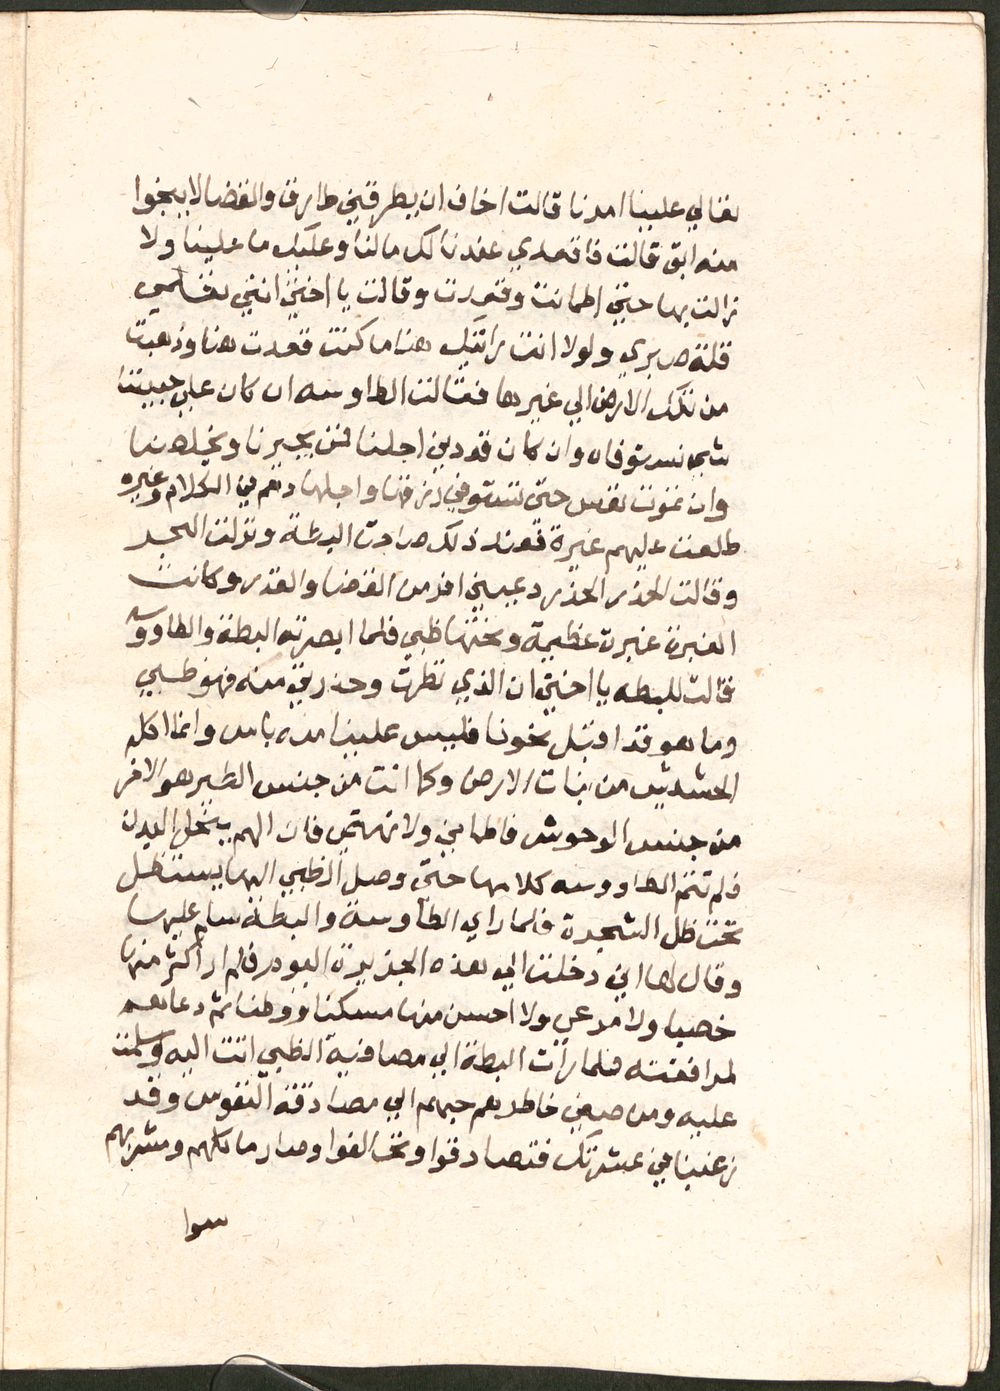 تعالي علينا امرنا قالت اخاف ان يطرقني طارق والقضا لا ينجوا
منه ابق قالت فاقعدي عندنا لك مالنا وعليك ما علينا ولا
زالت بها حتي اطمانت وقعدت وقالت يا اختي انتي تعلمي
قلة صبري ولولا انت رايتك هنا ما كنت قعدت هنا وذهبت
من تلك الارض الي غيرها فقالت الطاوسه ان كان علي جبيننا
شي نستوفاه وان كان قد دني اجلنا فمن يجيرنا ويخلصنا
وان تموت نفس حتي تستوفي رزقها واجلها وهم في الكلام وغيره
طلعت عليهم غبرة فعند ذلك صاحت البطة ونزلت البحر
وقالت الحذر الحذر وعيني افر من القضا والقدر وكانت
الغبرة غبرة عظيمة وتحتها ظبي فلما ابصرته البطة والطاووسه
قالت للبطه يا اختي ان الذي نظرت وحذرتي منه فهو ظبي
وما هو قد اقبل نحونا فليس علينا منه باس وانما اكله
الحشيش من نبات الارض وكما انت من جنس الطير هو الاخر
من جنس الوحوش فاطماني ولا تهتمي فان الهم ينحل البدن
فلم تتم الطاووسه كلامها حتي وصل الظبي اليها يستظل
تحت ظل الشجرة فلما راي الطاوسة والبطة سلم عليهما
وقال لهما اني دخلت الي هذه الجزيرة اليوم فلم ار اكثر منها
خصبا ولا مرعي ولا احسن منها مسكنا ووطنا ثم دعاهم
لمرافقته فلما رات البطة الي مصافية الظبي اتت اليه وسلمت
عليه ومن صفي خاطرهم جرهم الي مصادقة النفوس وقد
رغبنا في عشرتك فتصادقوا وتحالفوا وصار ماكلهم ومشربهم
سوا